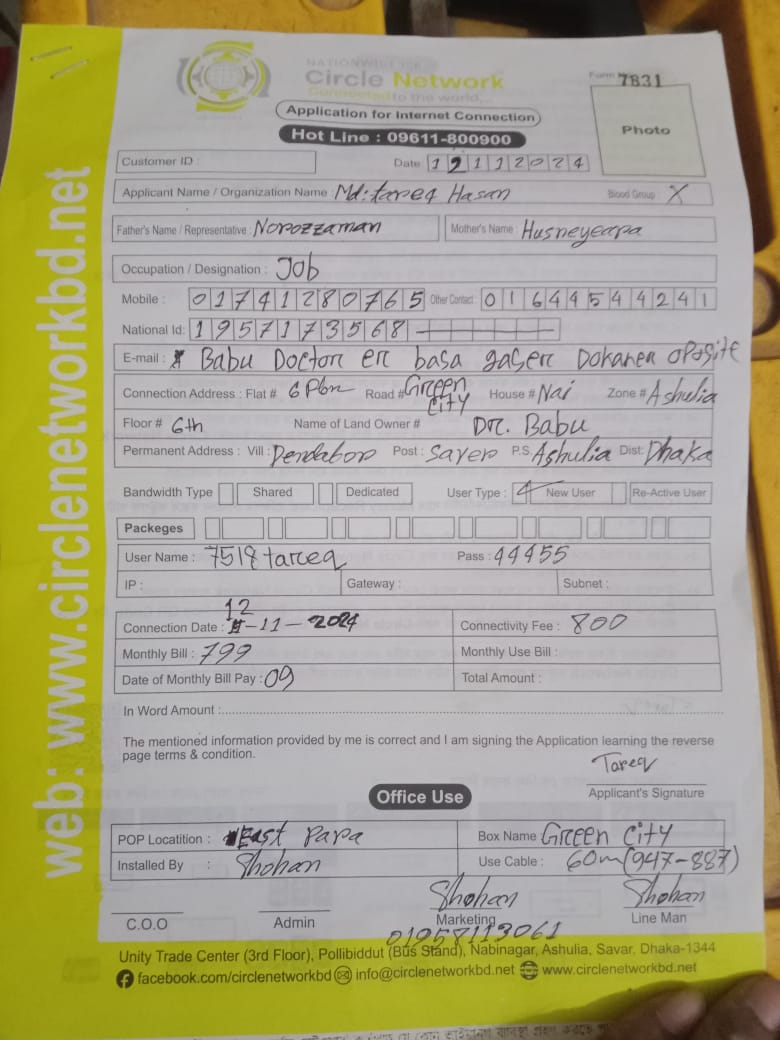 NATIONWIDE ISP
Circle Network
Connected to the world...
Form 7831
Application for Internet Connection
Hot Line : 09611-800900
Photo
Customer ID :
Date 12112024
Applicant Name / Organization Name : Md: tareq Hasan Blood Group : X
Father's Name / Representative : Norozzaman Mother's Name : Husneyeara
Occupation / Designation : Job
Mobile : 01741280765 Other Contact : 01644544241
National Id: 1957173568
E-mail : Babu Doctor er basa gaser Dokaner oposite
Connection Address : Flat # 6 Road # Green City House # Nai Zone # Ashulia
Floor # 6th Name of Land Owner # Dr. Babu
Permanent Address : Vill : Dendabor Post : Saver P.S. Ashulia Dist: Dhaka
Bandwidth Type Shared Dedicated User Type : New User Re-Active User
Packeges
User Name : 7518tareq Pass : 44455
IP : Gateway : Subnet :
Connection Date : 12-11-2024 Connectivity Fee : 800
Monthly Bill : 799 Monthly Use Bill :
Date of Monthly Bill Pay : 09 Total Amount :
In Word Amount :
The mentioned information provided by me is correct and I am signing the Application learning the reverse
page terms & condition.
Tareq
Applicant's Signature
Office Use
POP Locatition : East Para Box Name Green City
Installed By : Shohan Use Cable : 60m (947-887)
Shohan Shohan
C.O.O Admin Marketing Line Man
01958113061
Unity Trade Center (3rd Floor), Pollibiddut (Bus Stand), Nabinagar, Ashulia, Savar, Dhaka-1344
facebook.com/circlenetworkbd info@circlenetworkbd.net www.circlenetworkbd.net
web: www.circlenetworkbd.net